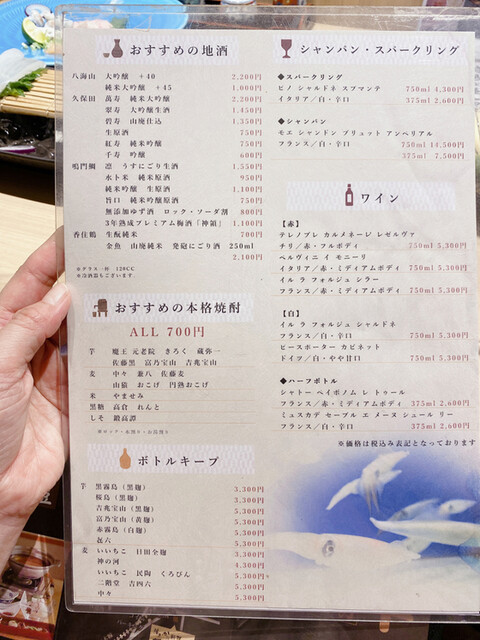 おすすめの地酒
八海山 大吟醸 +40 2,200円
純米大吟醸 +45 1,000円
久保田 萬寿 純米大吟醸 2,200円
翠寿 大吟醸生酒 1,450円
碧寿 山廃仕込 1,350円
生原酒 750円
紅寿 純米吟醸 750円
千寿 吟醸 600円
鳴門鯛 凛 うすにごり生酒 1,550円
水ト米 純米原酒 950円
純米吟醸 生原酒 1,100円
旨口 純米吟醸原酒 750円
無添加ゆず酒 ロック・ソーダ割 800円
3年熟成プレミアム梅酒「神領」 1,100円
香住鶴 生酛純米 700円
金魚 山廃純米 発砲にごり酒 250ml
2,100円
※グラス一杯 120CC
※冷酒器もございます。
おすすめの本格焼酎
ALL 700円
芋 魔王 元老院 きろく 蔵弥一
佐藤黒 富乃宝山 吉兆宝山
麦 中々 兼八 佐藤麦
山猿 おこげ 円熟おこげ
米 やませみ
黒糖 高倉 れんと
しそ 鍛高譚
ボトルキープ
芋 黒霧島(黒麹) 3,300円
桜島(黒麹) 3,300円
吉兆宝山(黒麹) 5,300円
富乃宝山(黄麹) 5,300円
赤霧島(白麹) 5,300円
㐂六 5,300円
麦 いいちこ 日田全麹 3,300円
神の河 4,300円
いいちこ 民陶 くろびん 5,300円
二階堂 吉四六 5,300円
中々 5,300円
シャンパン・スパークリング
◆スパークリング
ピノ シャルドネ スプマンテ 750ml 4,300円
イタリア/白・辛口 375ml 2,600円
◆シャンパン
モエ シャンドン ブリュット アンペリアル
フランス/白・辛口 750ml 14,500円
375ml 7,500円
ワイン
【赤】
テレノブレ カルメネーレ レゼルヴァ
チリ/赤・フルボディ 750ml 5,300円
ペルヴィニ イ モニーリ
イタリア/赤・ミディアムボディ 750ml 5,300円
イル ラ フォルジュ シラー
フランス/赤・ミディアムボディ 750ml 5,300円
【白】
イル ラ フォルジュ シャルドネ
フランス/白・辛口 750ml 5,300円
ピースポーター カビネット
ドイツ/白・やや甘口 750ml 5,300円
◆ハーフボトル
シャトー ペイボノム レ トゥール
フランス/赤・ミディアムボディ 375ml 2,600円
ミュスカデ セーブル エ メーヌ シュール リー
フランス/白・辛口 375ml 2,600円
※価格は税込み表記となっております